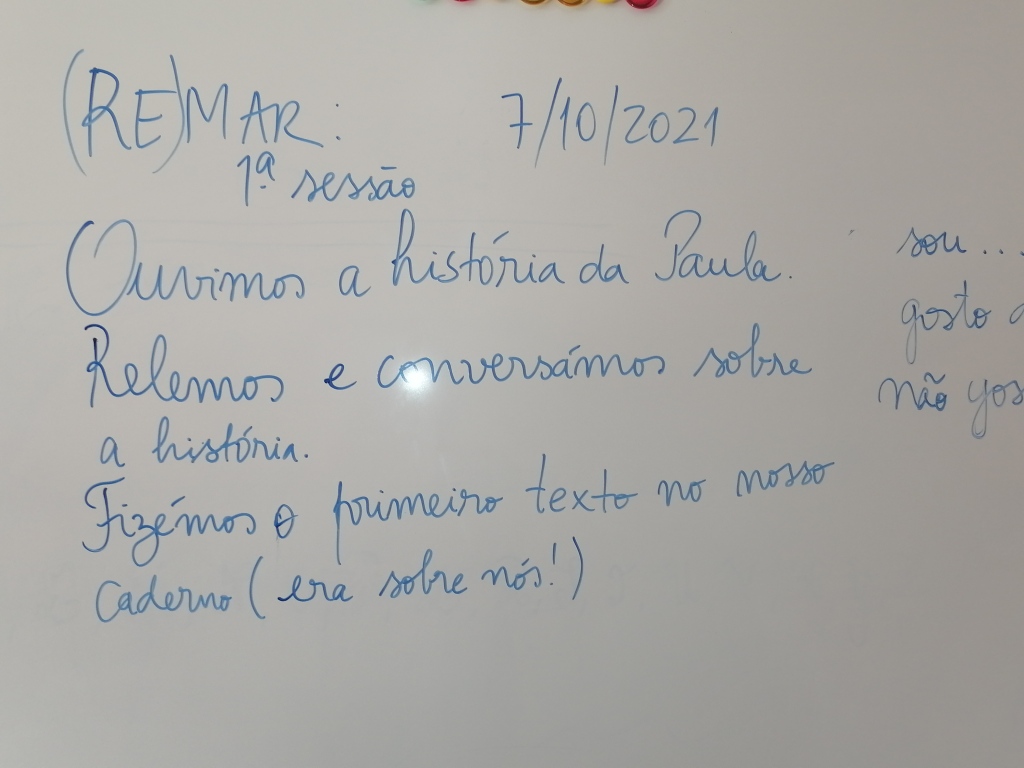 (RE)MAR: 7/10/2021
1ª sessão
Ouvimos a história da Paula.
Relemos e conversámos sobre
a história.
Fizémos o primeiro texto no nosso
caderno (era sobre nós!)
sou...
gosto
não